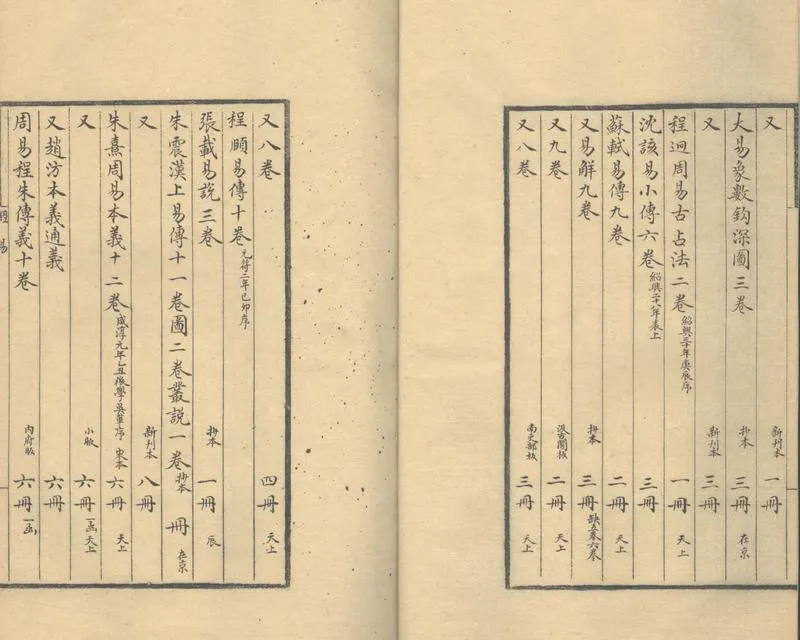 又 新刊本 一冊
大易象數鈎深圖三卷 抄本 三冊 在京
又 新刊本 三冊
程迥周易古占法二卷 紹興三十年庚辰序 一冊 天上
沈該易小傳六卷 紹興二十八年表上 三冊
蘇軾易傳九卷 二冊 天上
又易解九卷 抄本 三冊 缺五卷六卷
又九卷 汲古閣板 二冊 天上
又八卷 南吏部板 三冊 天上
又八卷 四冊 天上
程頤易傳十卷 元符二年己卯序
張載易說三卷 抄本 一冊 辰
朱震漢上易傳十一卷圖二卷叢説一卷 抄本 冊 在京
又 新刊本 八冊
朱熹周易本義十二卷 咸淳元年乙丑後學吳革序 宋本 六冊 天上
又 小版 六冊 一函 天上
又趙汸本義通義 六冊
周易程朱傳義十卷 內府版 六冊 一函
易